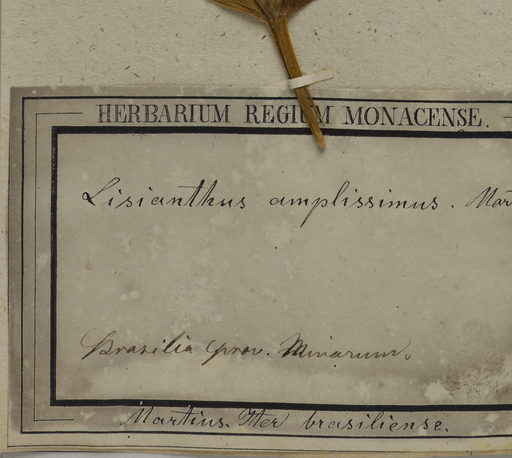 HERBARIUM REGIUM MONACENSE.
Lisianthus amplissimus. Mart
Brasilia prov. Minarum.
Martius. Iter brasiliense.